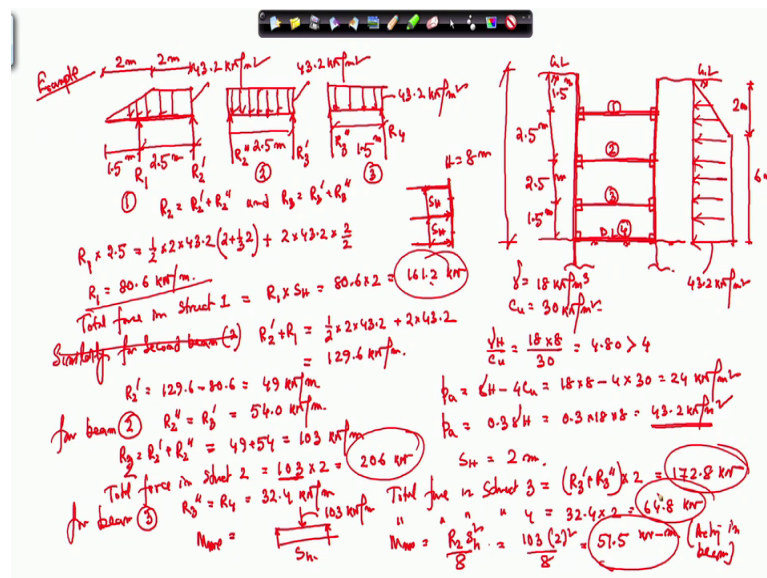 Example
2m 2m 43.2 kN/m² 43.2 kN/m²
43.2 kN/m²
1.5m 2.5m
R₁ R₂'
R₂'' 2.5m R₃'
R₃'' 1.5m R₄
① ② ③
R₂ = R₂' + R₂'' and R₃ = R₃' + R₃''
R₁ × 2.5 = ½ × 2 × 43.2 (2 + ⅓ 2) + 2 × 43.2 × 2/2
R₁ = 80.6 kN/m.
Total force in Strut 1 = R₁ × S_H = 80.6 × 2 = 161.2 kN
Similarly for second beam (2)
R₂' + R₁ = ½ × 2 × 43.2 + 2 × 43.2
= 129.6 kN/m.
R₂' = 129.6 - 80.6 = 49 kN/m
for beam ② R₂'' = R₃' = 54.0 kN/m.
R₂ = R₂' + R₂'' = 49 + 54 = 103 kN/m
Total force in Strut 2 = 103 × 2 = 206 kN
for beam ③ R₃'' = R₄ = 32.4 kN/m
M_max =
103 kN/m
S_H.
S_H
S_H
H = 8m
G.L G.L
1.5m
2.5m
2.5m
1.5m
①
②
③
④
2m
6m
43.2 kN/m²
γ = 18 kN/m³
C_u = 30 kN/m²
γH/C_u = 18×8/30 = 4.80 > 4
p_a = γH - 4C_u = 18×8 - 4×30 = 24 kN/m²
p_a = 0.3γH = 0.3×18×8 = 43.2 kN/m²
S_H = 2 m.
Total force in Strut 3 = (R₃' + R₃'') × 2 = 172.8 kN
" " " " 4 = 32.4 × 2 = 64.8 kN
M_max = R₂ S_H²/8 = 103 (2)²/8 = 51.5 kN-m (Acting in beam)